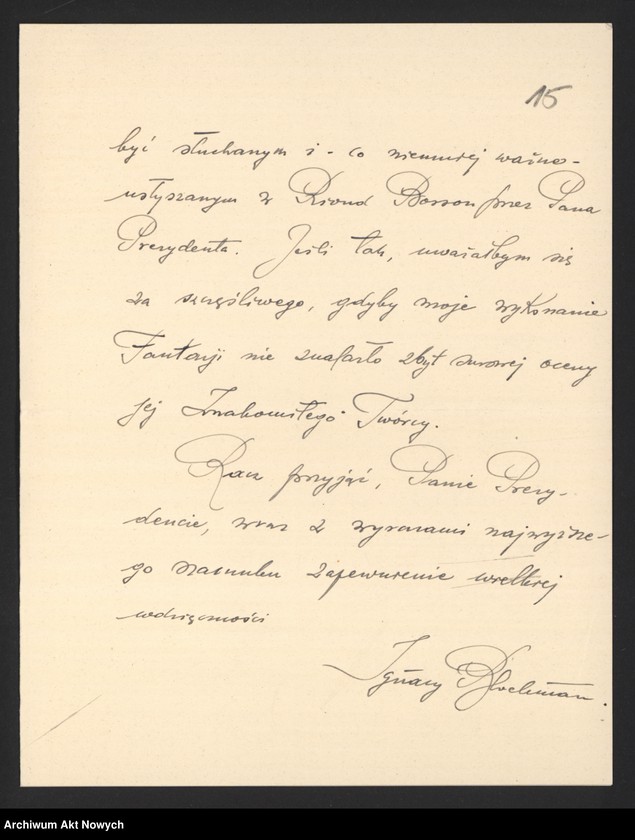 15
być słuchanym i - co niemniej ważne -
usłyszanym w Riond Bosson przez Pana
Prezydenta. Jeśli tak, uważałbym się
za szczęśliwego, gdyby moje wykonanie
Fantazji nie znalazło zbyt surowej oceny
jej Znakomitego Twórcy.
Racz przyjąć, Panie Prezy-
dencie, wraz z wyrazami najwyższe-
go szacunku zapewnienie wielkiej
wdzięczności
Ignacy Blochman.
Archiwum Akt Nowych